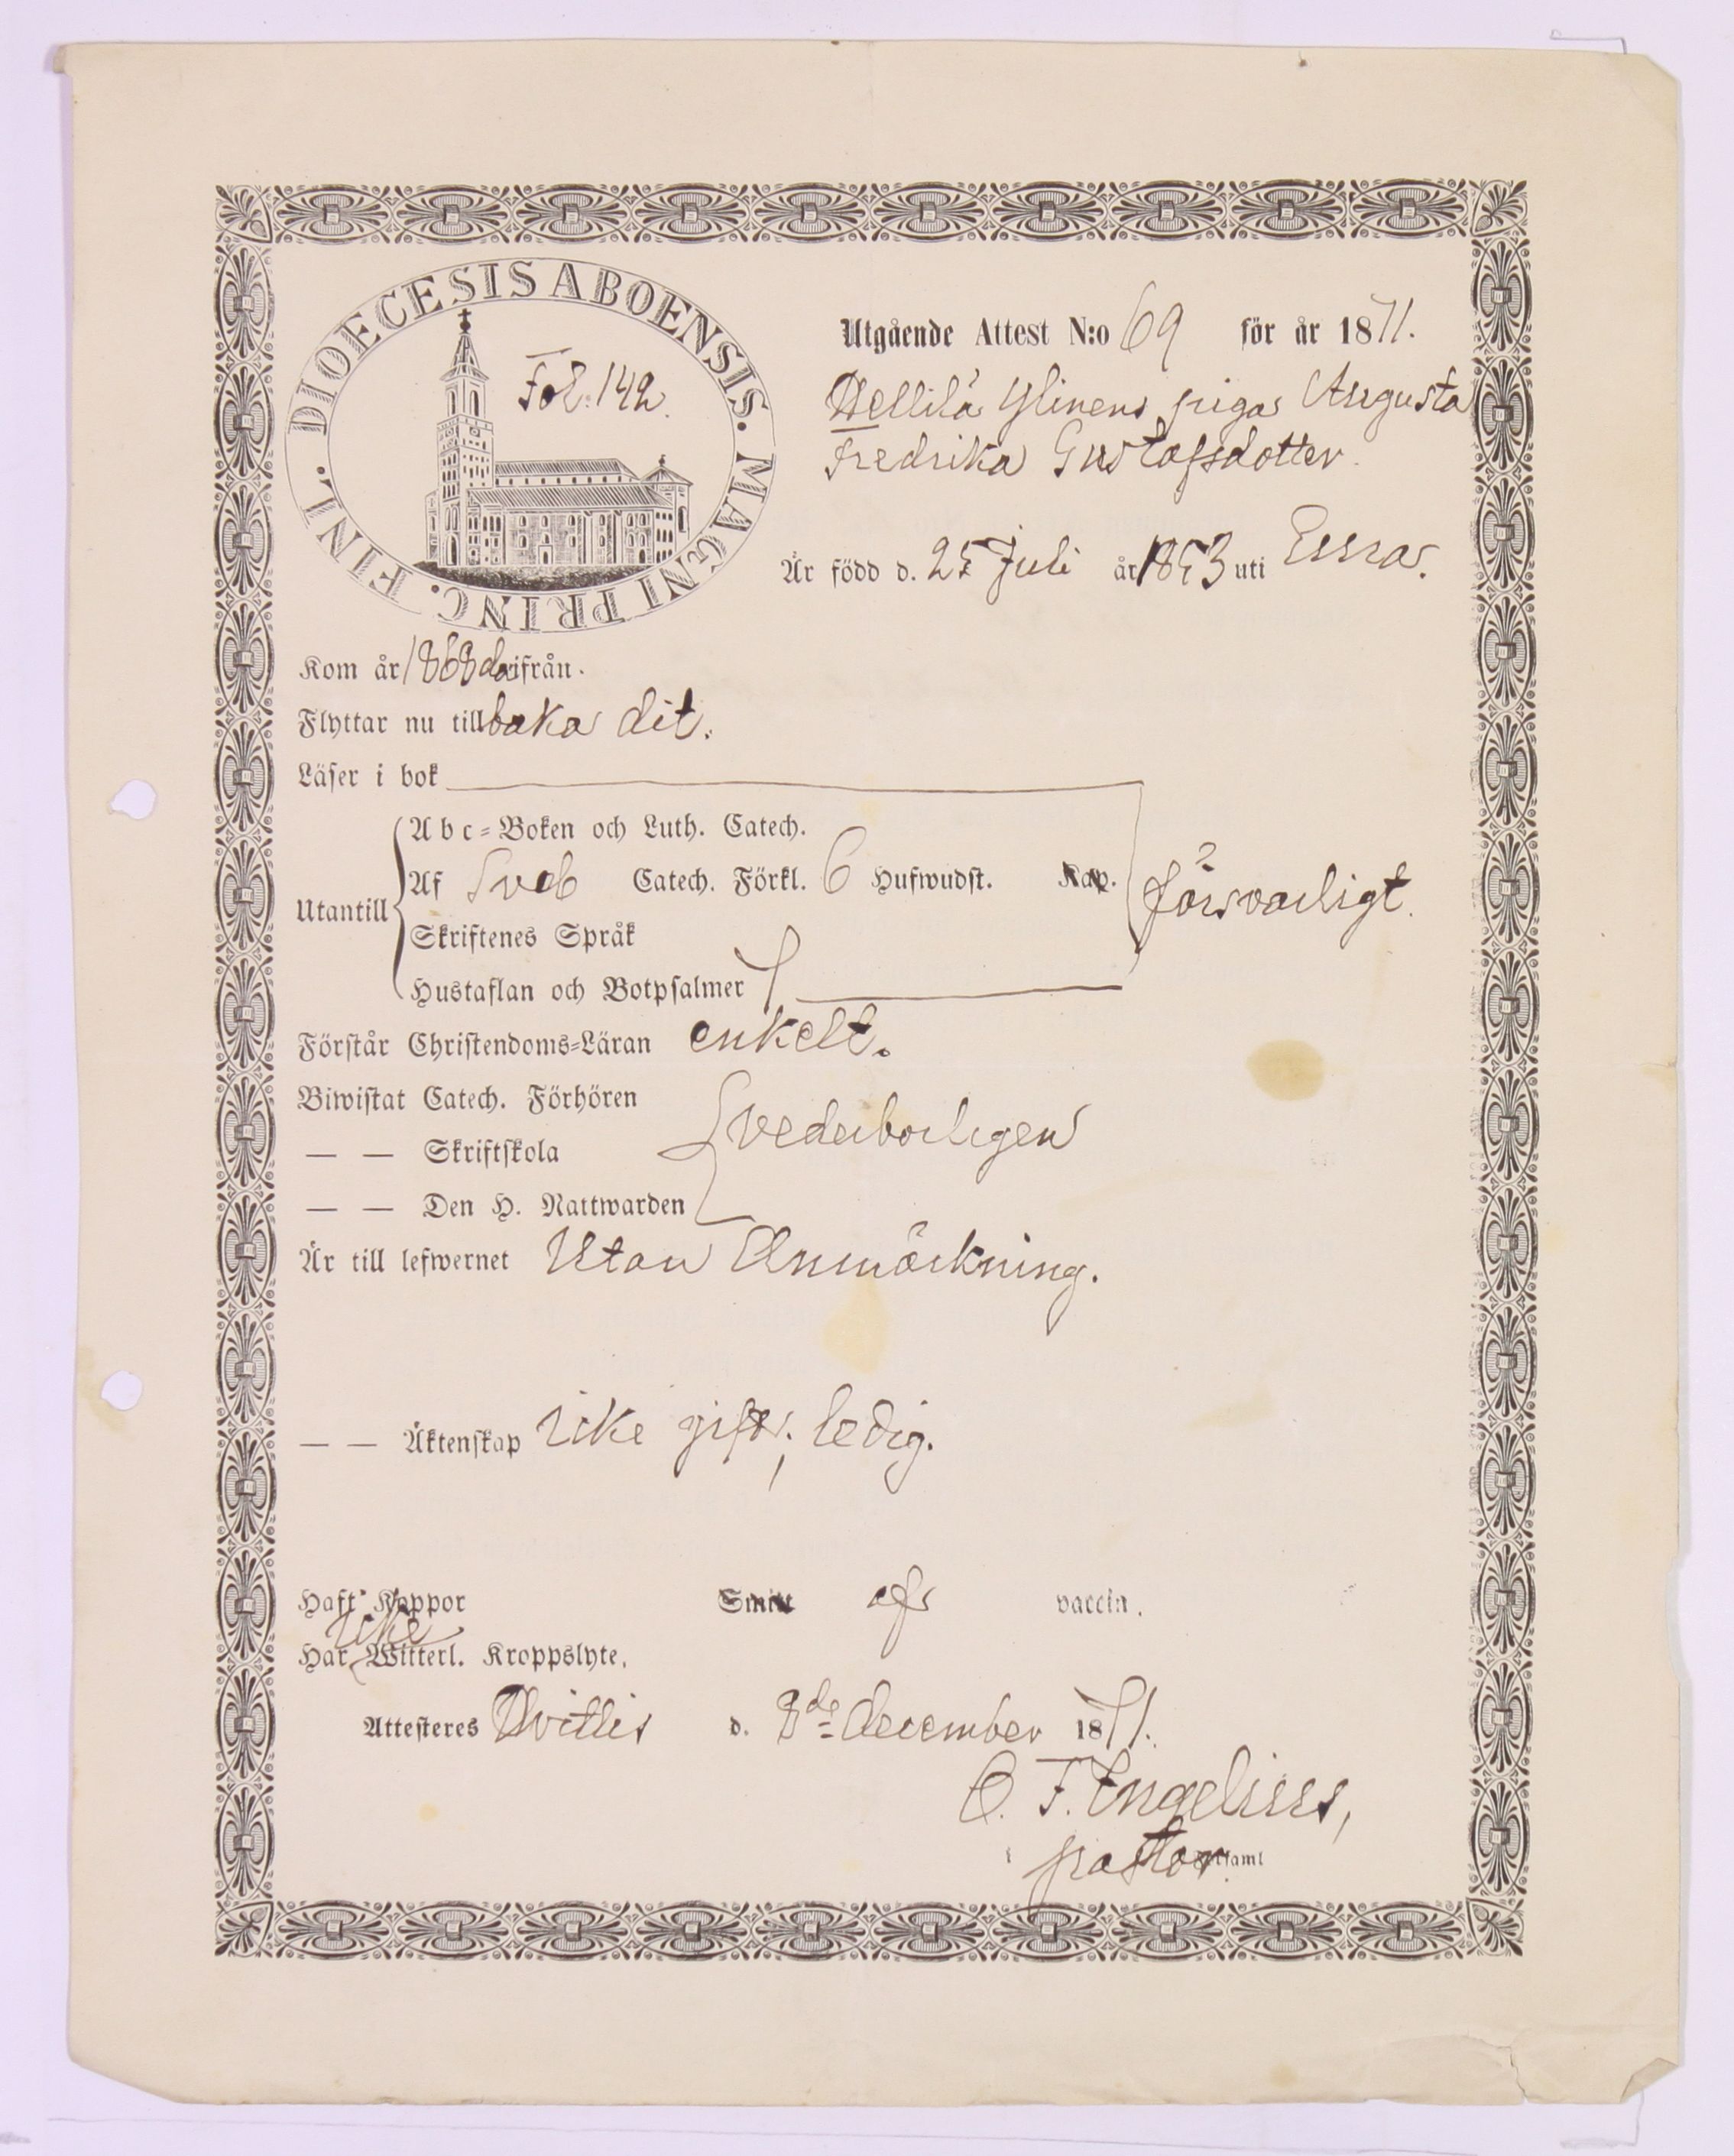 DIOECESIS ABOENSIS. MAGNI PRINC. FINL.
Fol. 142.
Utgående Attest N:o 69 för år 1871.
Hellilä Ylinens piga Augusta
Fredrika Gustafsdotter.
Är född d. 25 Juli år 1853 uti Eura.
Kom år 1868 därifrån.
Flyttar nu till baka dit.
Läser i bok
Abc-Boken och Luth. Catech.
Utantill
Af Sveb Catech. Förkl. 6 Hufwudst. Kap.
försvarligt.
Skriftenes Språk
Hustaflan och Botpsalmer
Förstår Christendoms-Läran enkelt.
Biwistat Catech. Förhören
— — Skriftskola
vederborligen
— — Den H. Nattwarden
Är till lefwernet Utan Anmärkning.
— — Äktenskap icke gift; ledig.
Haft Koppor Smitt af vaccin.
icke
Har Witterl. Kroppslyte.
Attesteres Hvittis d. 8de december 1871.
C. F. Engelius,
pastor.